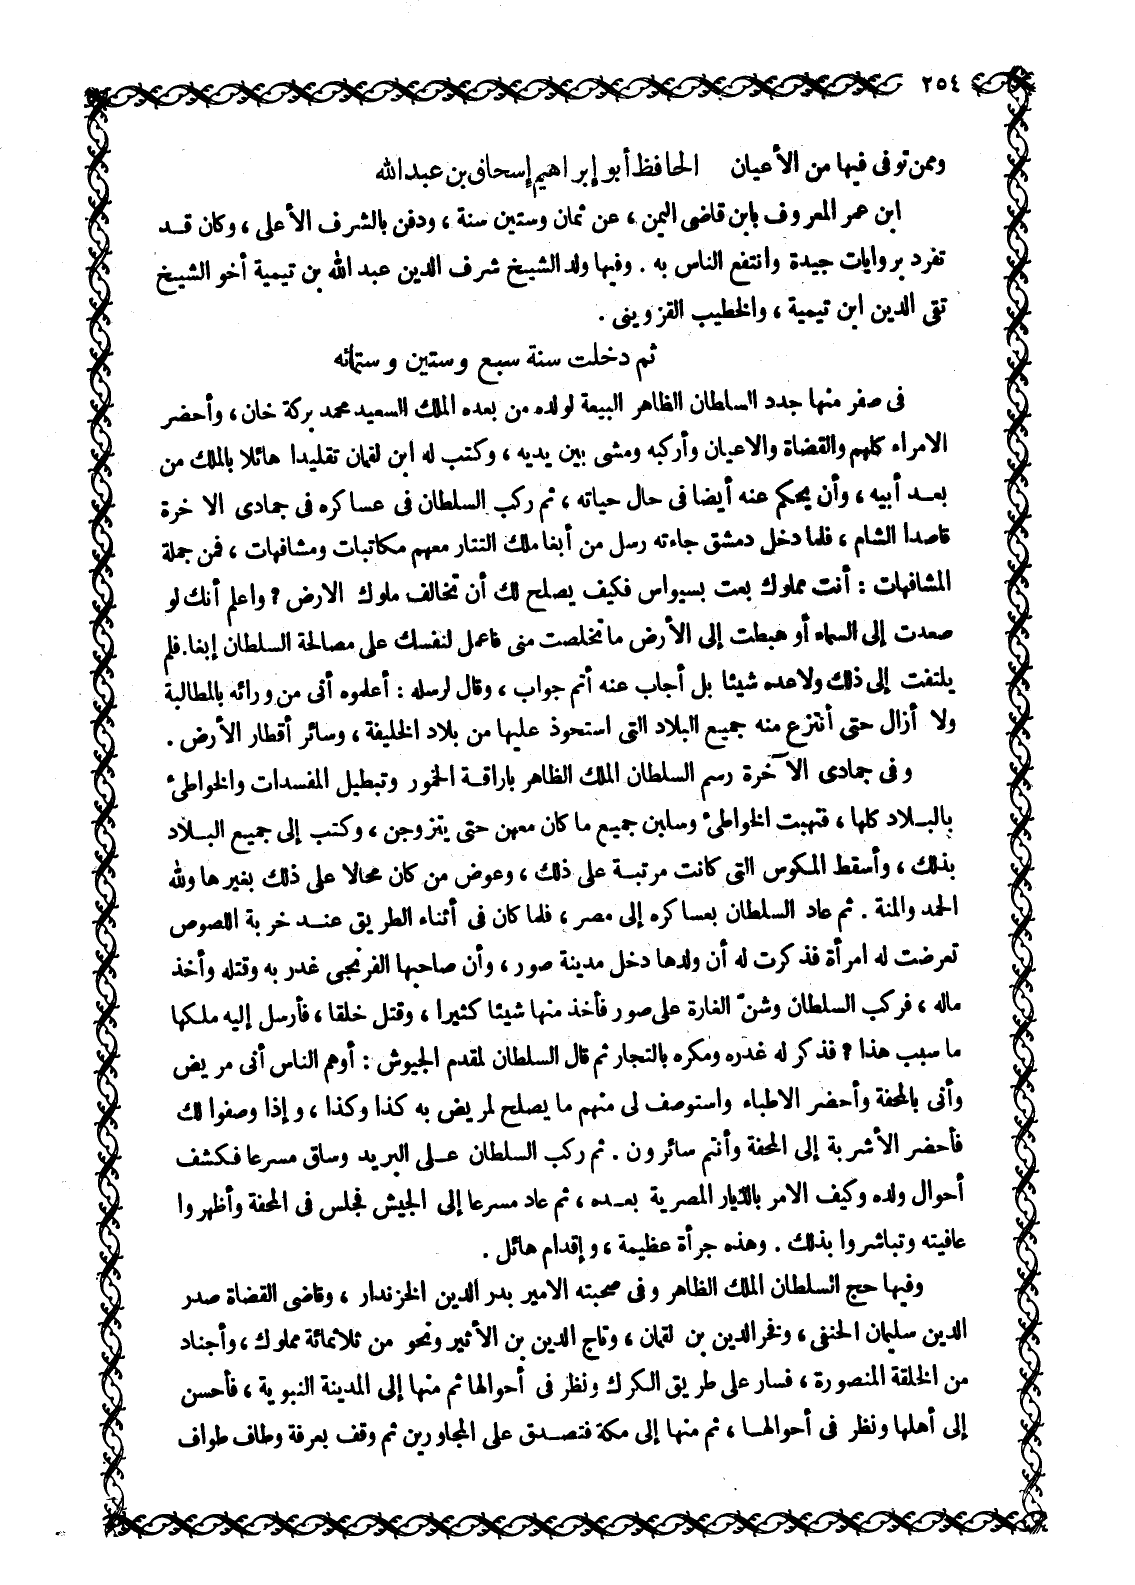 ٢٥٤
وممن توفى فيها من الأعيان الحافظ أبو إبراهيم إسحاق بن عبد الله
ابن عمر المعروف بابن قاضى اليمن ، عن ثمان وستين سنة ، ودفن بالشرف الأعلى ، وكان قـد
تفرد بروايات جيدة وانتفع الناس به . وفيها ولد الشيخ شرف الدين عبد الله بن تيمية أخو الشيخ
تقى الدين ابن تيمية ، والخطيب القزوينى .
ثم دخلت سنة سبع وستين وستمائه
فى صفر منها جدد السلطان الظاهر البيعة لولده من بعده الملك السعيد محمد بركة خان ، وأحضر
الامراء كلهم والقضاة والاعيان وأركبه ومشى بين يديه ، وكتب له ابن لقمان تقليدا هائلا بالملك من
بعـد أبيه ، وأن يحكم عنه أيضا فى حال حياته ، ثم ركب السلطان فى عساكره فى جمادى الا خرة
قاصدا الشام ، فلما دخل دمشق جاءته رسل من أبغا ملك التتار معهم مكاتبات ومشافهات ، فمن جملة
المشافهات : أنت مملوك بعت بسيواس فكيف يصلح لك أن تخالف ملوك الارض ؟ واعلم أنك لو
صعدت إلى السماء أو هبطت إلى الأرض ما تخلصت منى فاعمل لنفسك على مصالحة السلطان إبغا . فلم
يلتفت إلى ذلك ولا عده شيئا بل أجاب عنه أتم جواب ، وقال لرسله : أعلموه أنى من ورائه بالمطالبة
ولا أزال حتى أنتزع منه جميع البلاد التى استحوذ عليها من بلاد الخليفة ، وسائر أقطار الأرض .
وفى جمادى الآخرة رسم السلطان الملك الظاهر باراقة الخمور وتبطيل المفسدات والخواطئ
بالبـلاد كلها ، فنهبت الخواطئ وسلبن جميع ما كان معهن حتى يتزوجن ، وكتب إلى جميع البـلاد
بذلك ، وأسقط المكوس التى كانت مرتبـة على ذلك ، وعوض من كان محالا على ذلك بغيرها ولله
الحمد والمنة . ثم عاد السلطان بعساكره إلى مصر ، فلما كان فى أثناء الطريق عنـد خربة اللصوص
تعرضت له امرأة فذكرت له أن ولدها دخل مدينة صور ، وأن صاحبها الفرنجى غدر به وقتله وأخذ
ماله ، فركب السلطان وشنّ الغارة على صور فأخذ منها شيئا كثيرا ، وقتل خلقا ، فأرسل إليه ملكها
ما سبب هذا ؟ فذكر له غدره ومكره بالتجار ثم قال السلطان لمقدم الجيوش : أوهم الناس أنى مريض
وأنى بالمحفة وأحضر الاطباء واستوصف لى منهم ما يصلح لمريض به كذا وكذا ، وإذا وصفوا لك
فأحضر الأشربة إلى المحفة وأنتم سائرون . ثم ركب السلطان عـلى البريد وساق مسرعا فكشف
أحوال ولده وكيف الامر بالديار المصرية بعـده ، ثم عاد مسرعا إلى الجيش فجلس فى المحفة وأظهروا
عافيته وتباشروا بذلك . وهذه جرأة عظيمة ، وإقدام هائل .
وفيها حج السلطان الملك الظاهر وفى صحبته الامير بدر الدين الخزندار ، وقاضى القضاة صدر
الدين سليمان الحنفى ، وفخر الدين بن لقمان ، وتاج الدين بن الأثير ونحو من ثلاثمائة مملوك ، وأجناد
من الحلقة المنصورة ، فسار على طريق الكرك ونظر فى أحوالها ثم منها إلى المدينة النبوية ، فأحسن
إلى أهلها ونظر فى أحوالهـا ، ثم منها إلى مكة فتصـدق على المجاورين ثم وقف بعرفة وطاف طواف